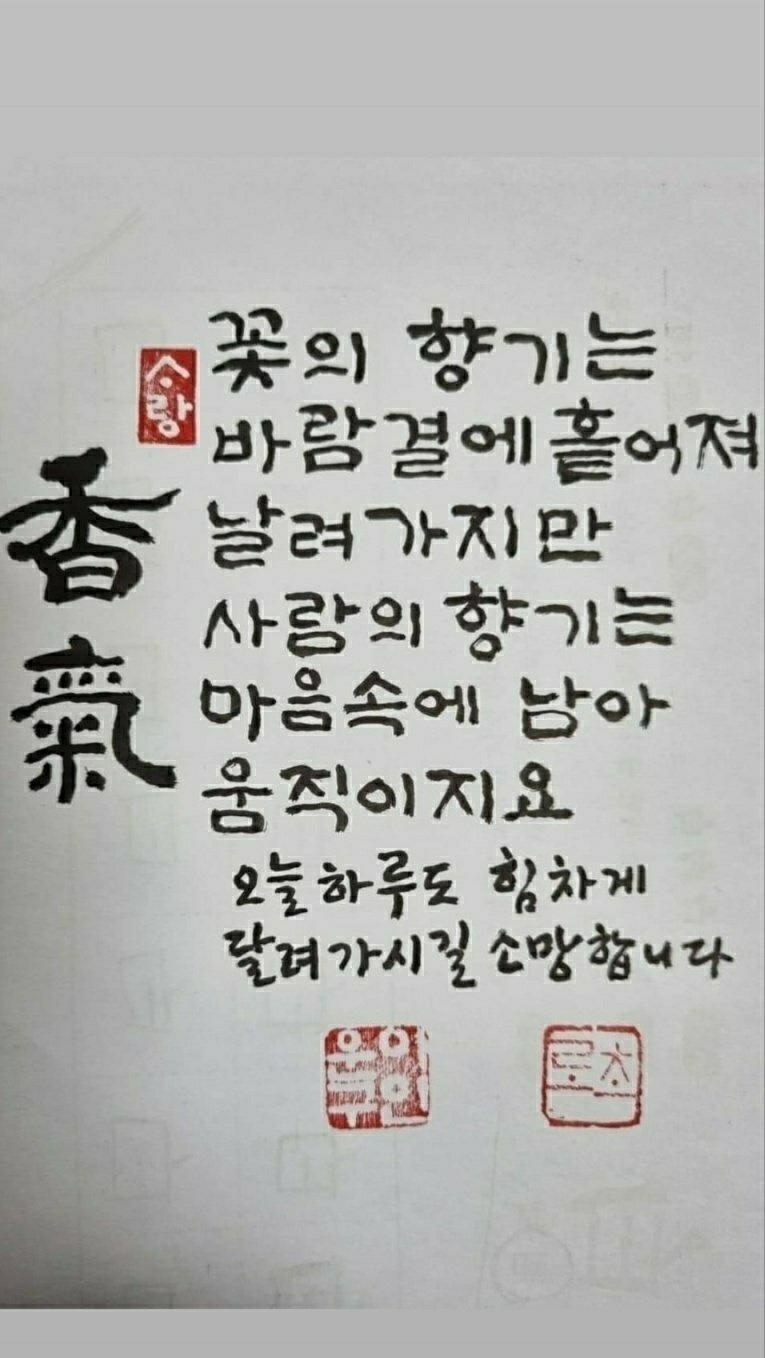 꽃의 향기는
바람결에 흩어져
날려가지만
사람의 향기는
마음속에 남아
움직이지요
오늘하루도 힘차게
달려가시길 소망합니다
香氣
사랑